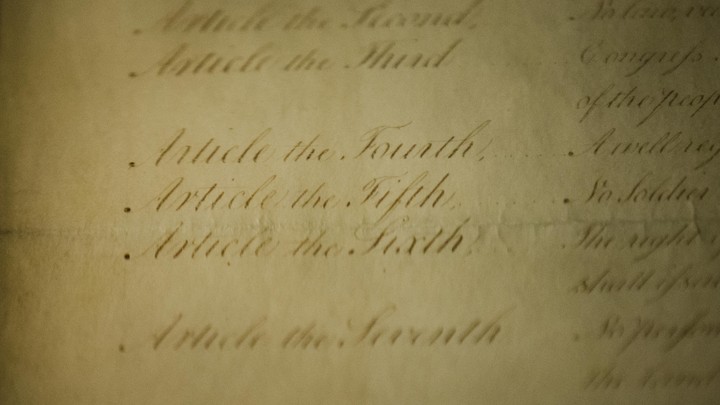 Article the Second, No law, va
Article the Third Congreſs
of the peop
Article the Fourth, A well reg
Article the Fifth, No Soldier
Article the Sixth, The right of
shall iſsue
Article the Seventh No perſon
the Land